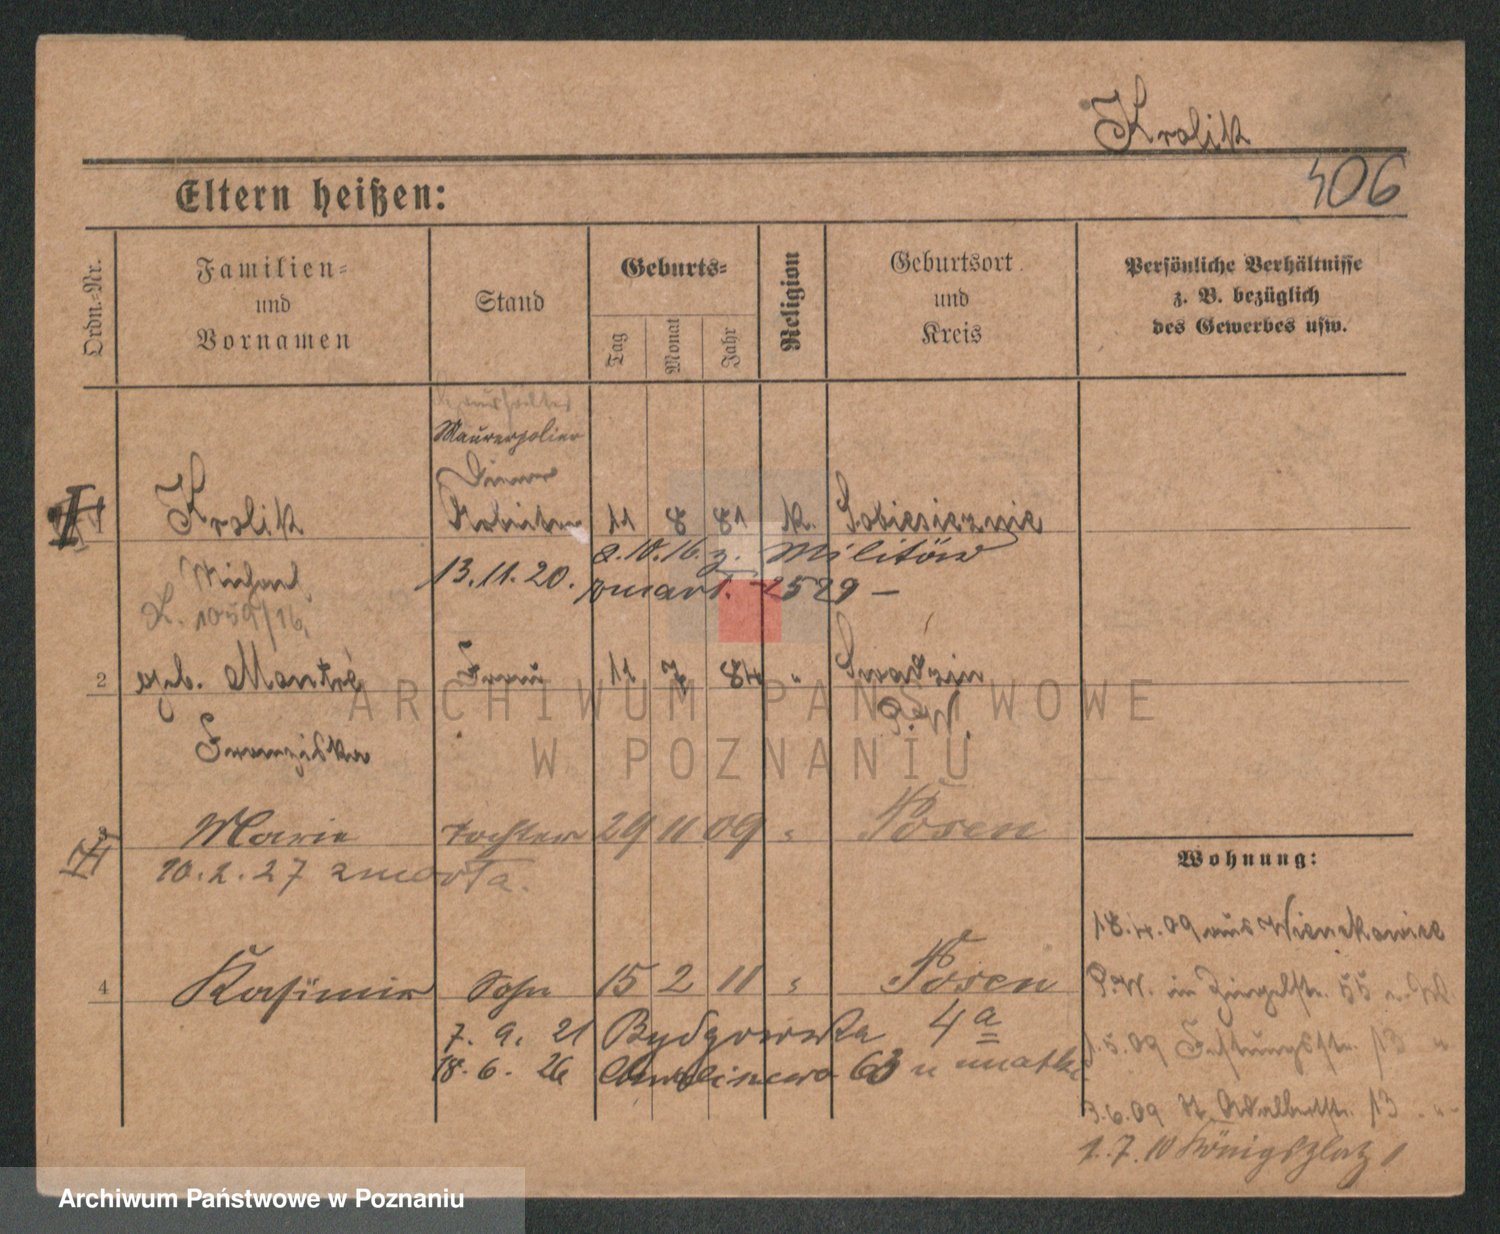 Krolik
406
Eltern heißen:
Ordn.=Nr.
Familien= und Vornamen
Stand
Geburts=
Tag
Monat
Jahr
Religion
Geburtsort und Kreis
Persönliche Verhältnisse
z. B. bezüglich
des Gewerbes usw.
Maurerpolier
Diener
Krolik Arbeiter 11 8 81 k. Sobiesiernie
Michael 13.11.20. 2.10.16. z. Militär
L. 1059/16.
zmarł. 2529 –
2 geb. Mantić Frau 11 7 84 " Swadzim
P.W.
Franziska
Marie Tochter 29 11 09 " Posen
10.2.27 zmarła.
4 Kasimir Sohn 15 2 11 " Posen
7. 9. 21 Bydgowska 4a
18. 6. 26 63 u matki
Wohnung:
18.4.09 aus Wienskowice
P.W. in Ziegelstr. 55
1.5.09 Festungsstr. 13 "
3.6.09 St. Adalbertstr. 13 "
1.7.10 Königsplatz 1
ARCHIWUM PAŃSTWOWE
W POZNANIU
Archiwum Państwowe w Poznaniu